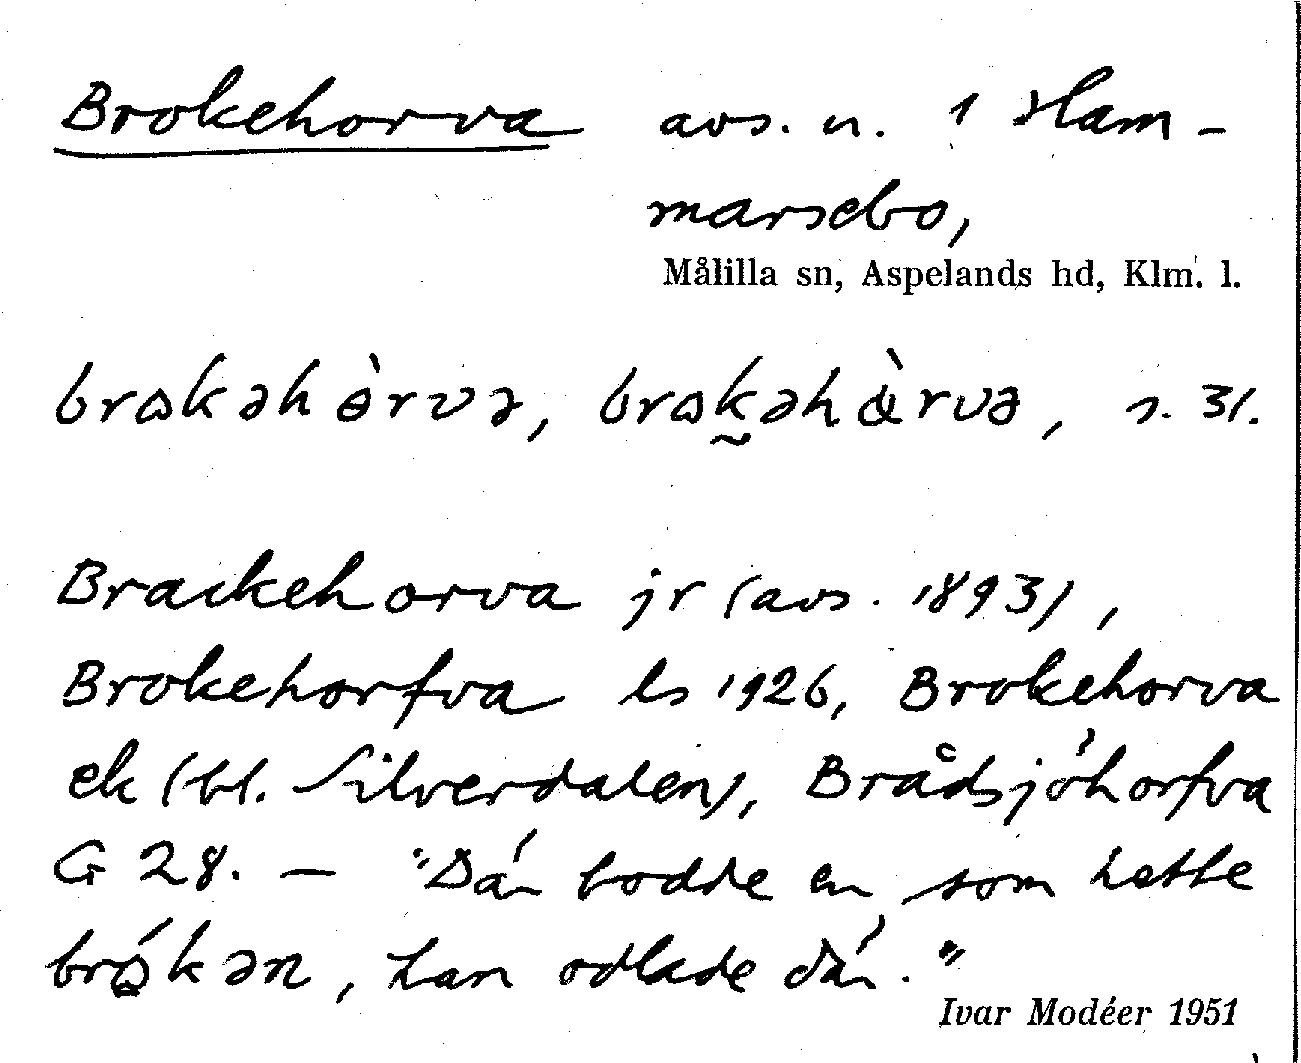 Brokehorva avs. n. 1 Ham-
marsebo,
Målilla sn, Aspelands hd, Klm. l.
brɷkəhɵ̀rvə, brɷk̰əhɑ̀rvə, s. 31.
Brackehorva jr (avs. 1893),
Brokehorfva ls 1926, Brokehorva
ek (bl. Silverdalen), Brådsjöhorfva
G 28. — "Där bodde en som hette
brɷ́kən, han odlade där."
Ivar Modéer 1951